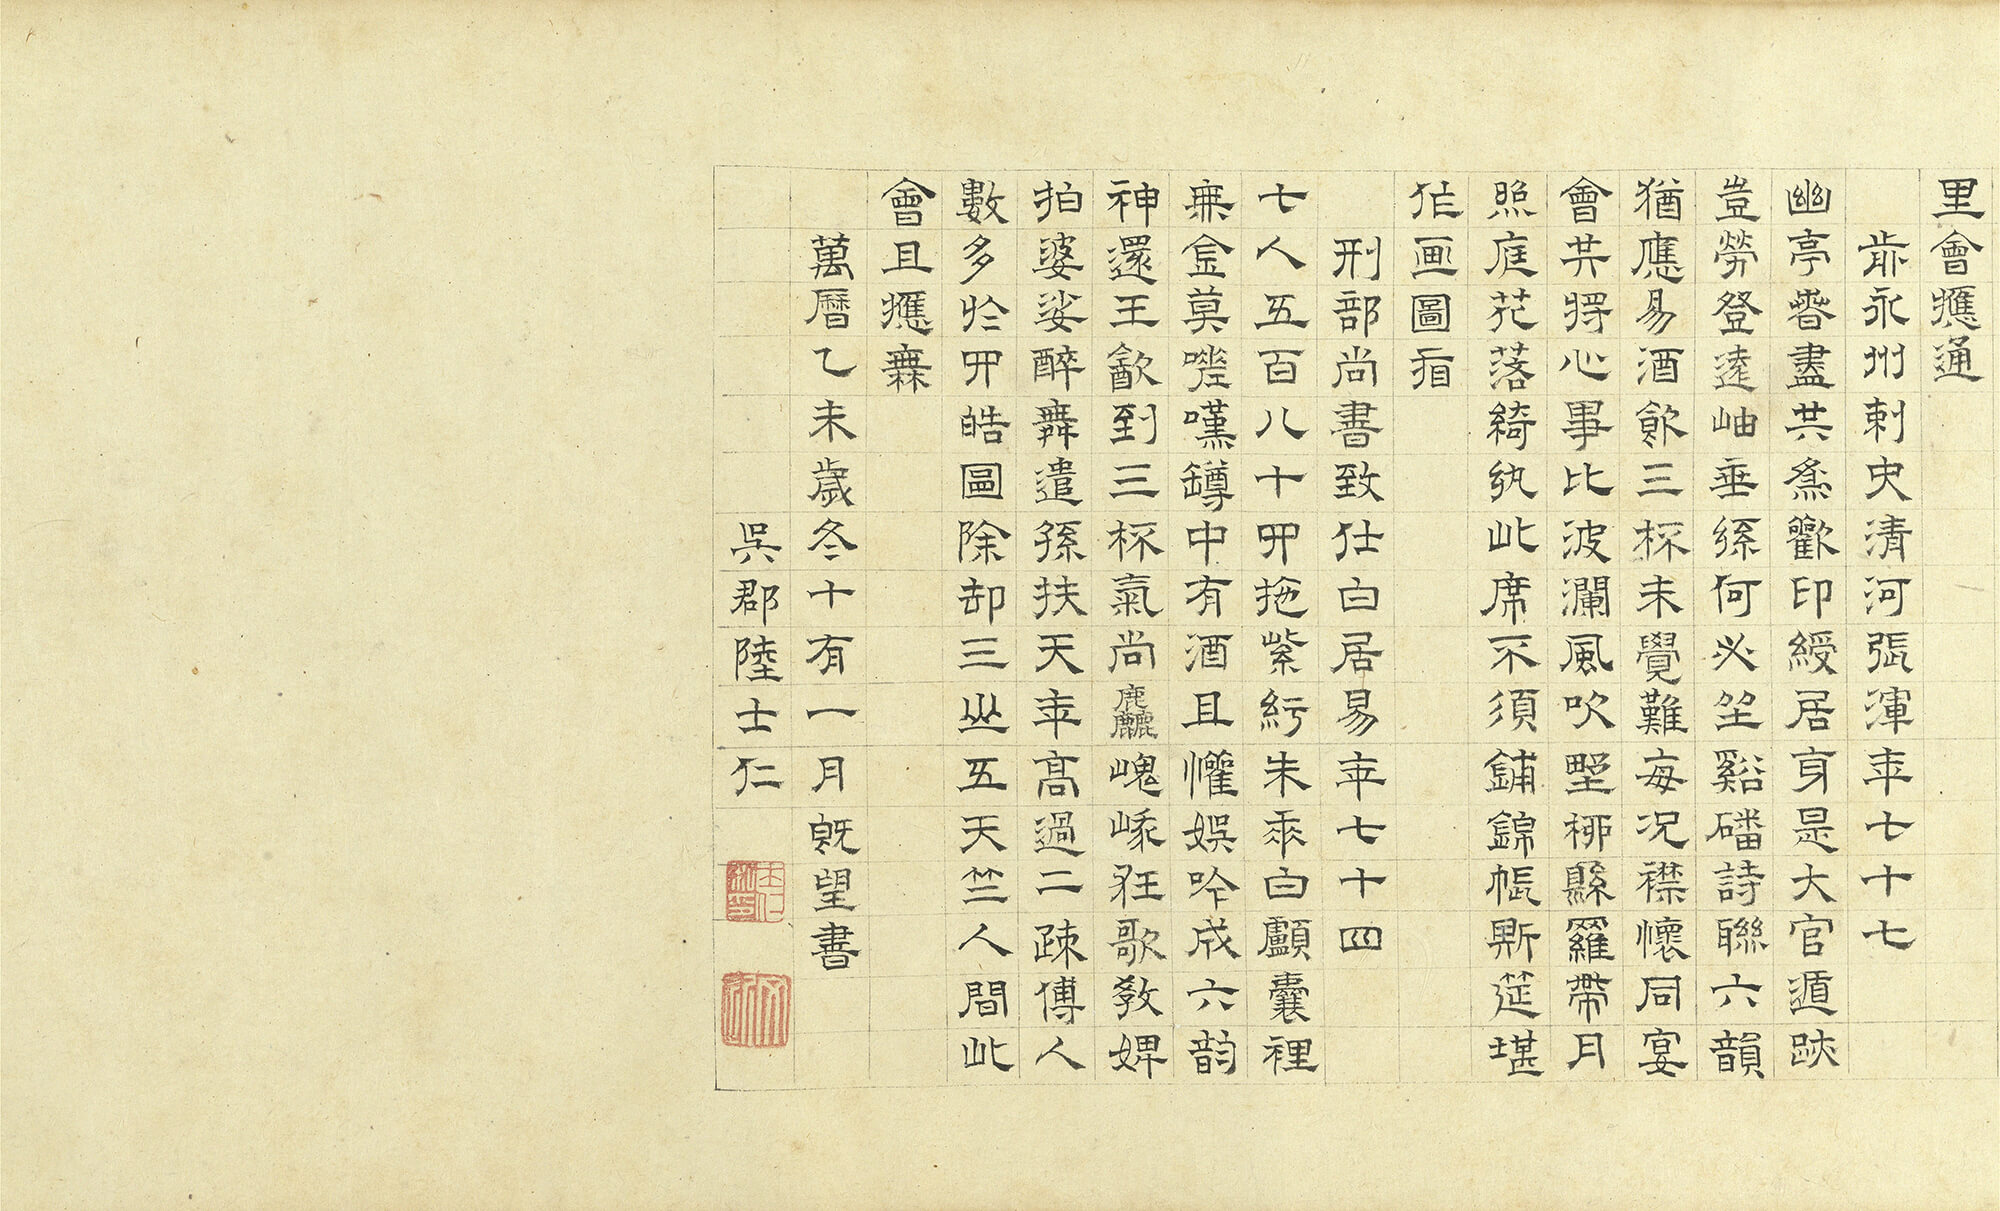 里會應通
前永州刺史清河張渾年七十七
幽亭春盡共為歡印綬居身是大官遁跡
豈勞登遠岫垂絲何必坐谿磻詩聯六韻
猶應易酒飲三杯未覺難每況襟懷同宴
會共將心事比波瀾風吹野柳懸羅帶月
照庭花落綺紈此席不須鋪錦帳斯筵堪
作画圖看
刑部尚書致仕白居易年七十四
七人五百八十四拖紫紆朱垂白鬚囊裡
無金莫嗟嘆罇中有酒且懽娛吟成六韵
神還王飲到三杯氣尚麤嵬峨狂歌教婢
拍婆娑醉舞遣孫扶天年高過二疎傅人
數多於四皓圖除却三山五天竺人間此
會且應無
萬曆乙未歲冬十有一月既望書
吳郡陸士仁